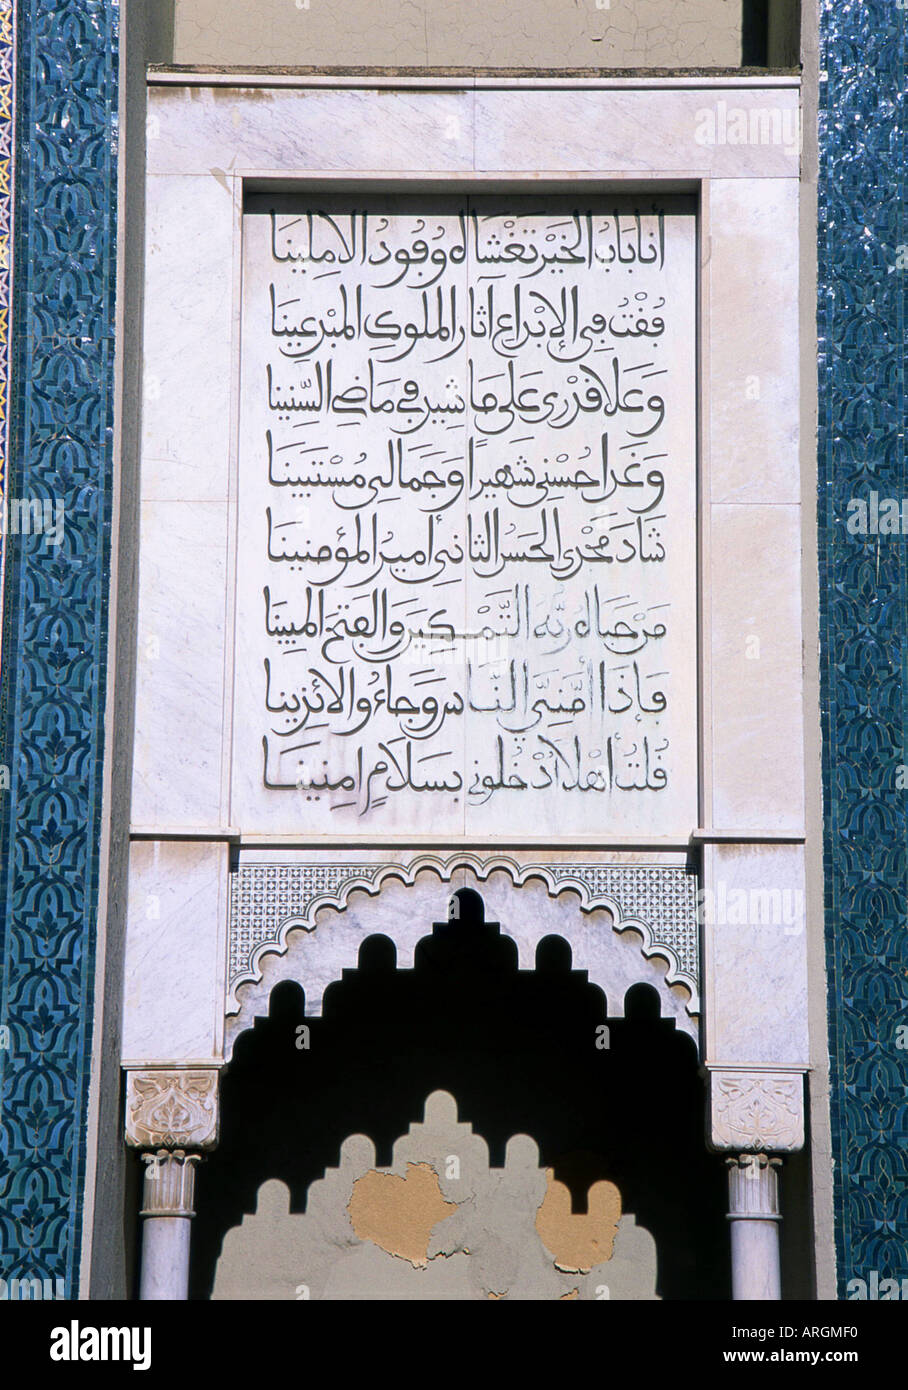 أنا باب الخير تغشاه وفود الاملينا
فقت في الإبداع آثار الملوك المبدعينا
وعلا قدري على ما شيد في ماضي السنينا
وغدا حسني شهيرا وجمالي مستبينا
شاد مجدي الحسن الثاني أمير المؤمنينا
مد حباه ربه التمكين والفتح المبينا
فإذا أمني الناس وجاءوا لائذينا
قلت أهلا ادخلوني بسلام امنينا
alamy
Image ID: ARGMF0
www.alamy.com